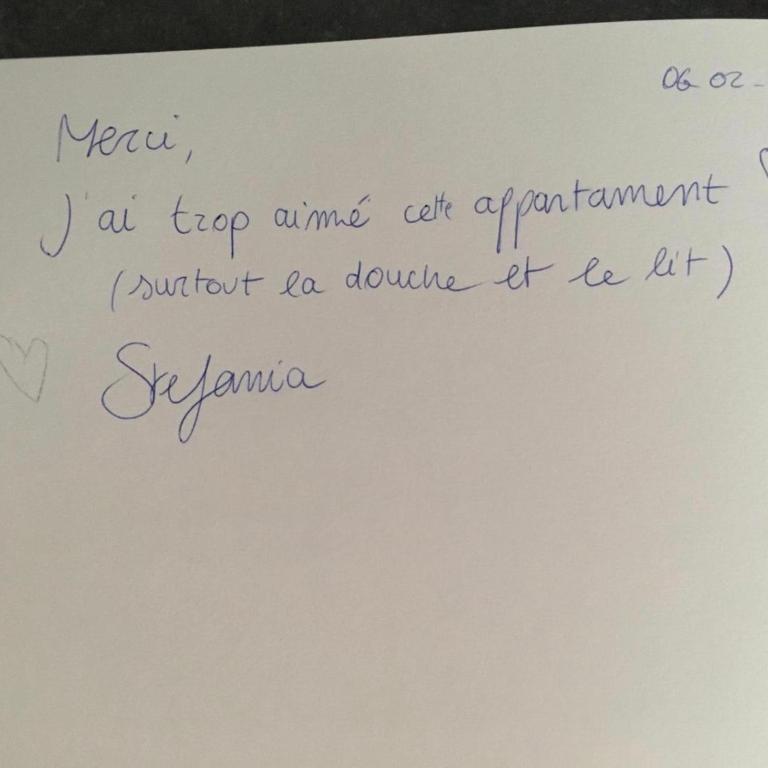 06 02 -
Merci,
J'ai trop aimé cette appartament
(surtout la douche et le lit)
Stefania